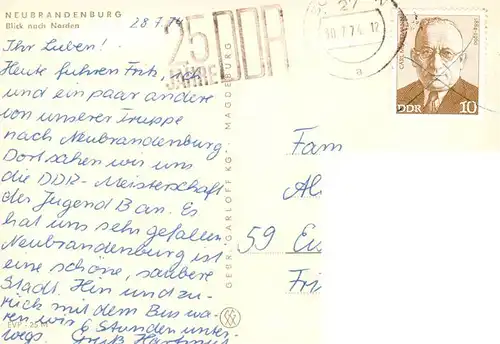 NEUBRANDENBURG
Blick nach Norden
28.7.74
Ihr Lieben!
Heute fuhren Fritz, ich
und ein paar andere
von unserer Truppe
nach Neubrandenburg.
Dort sahen wir uns
die DDR-Meisterschaft
der Jugend B an. Es
hat uns sehr gefallen.
Neubrandenburg ist
eine schöne, saubere
Stadt. Hin und zu-
rück mit dem Bus wa-
ren wir 6 Stunden unter-
wegs. Gruß Hartmut
EVP -.25 M
GEBR. GARLOFF KG · MAGDEBURG
25 JAHRE DDR
27
30.7.74. 12
a
DDR
10
Fam
Al
59 Eis
Fri